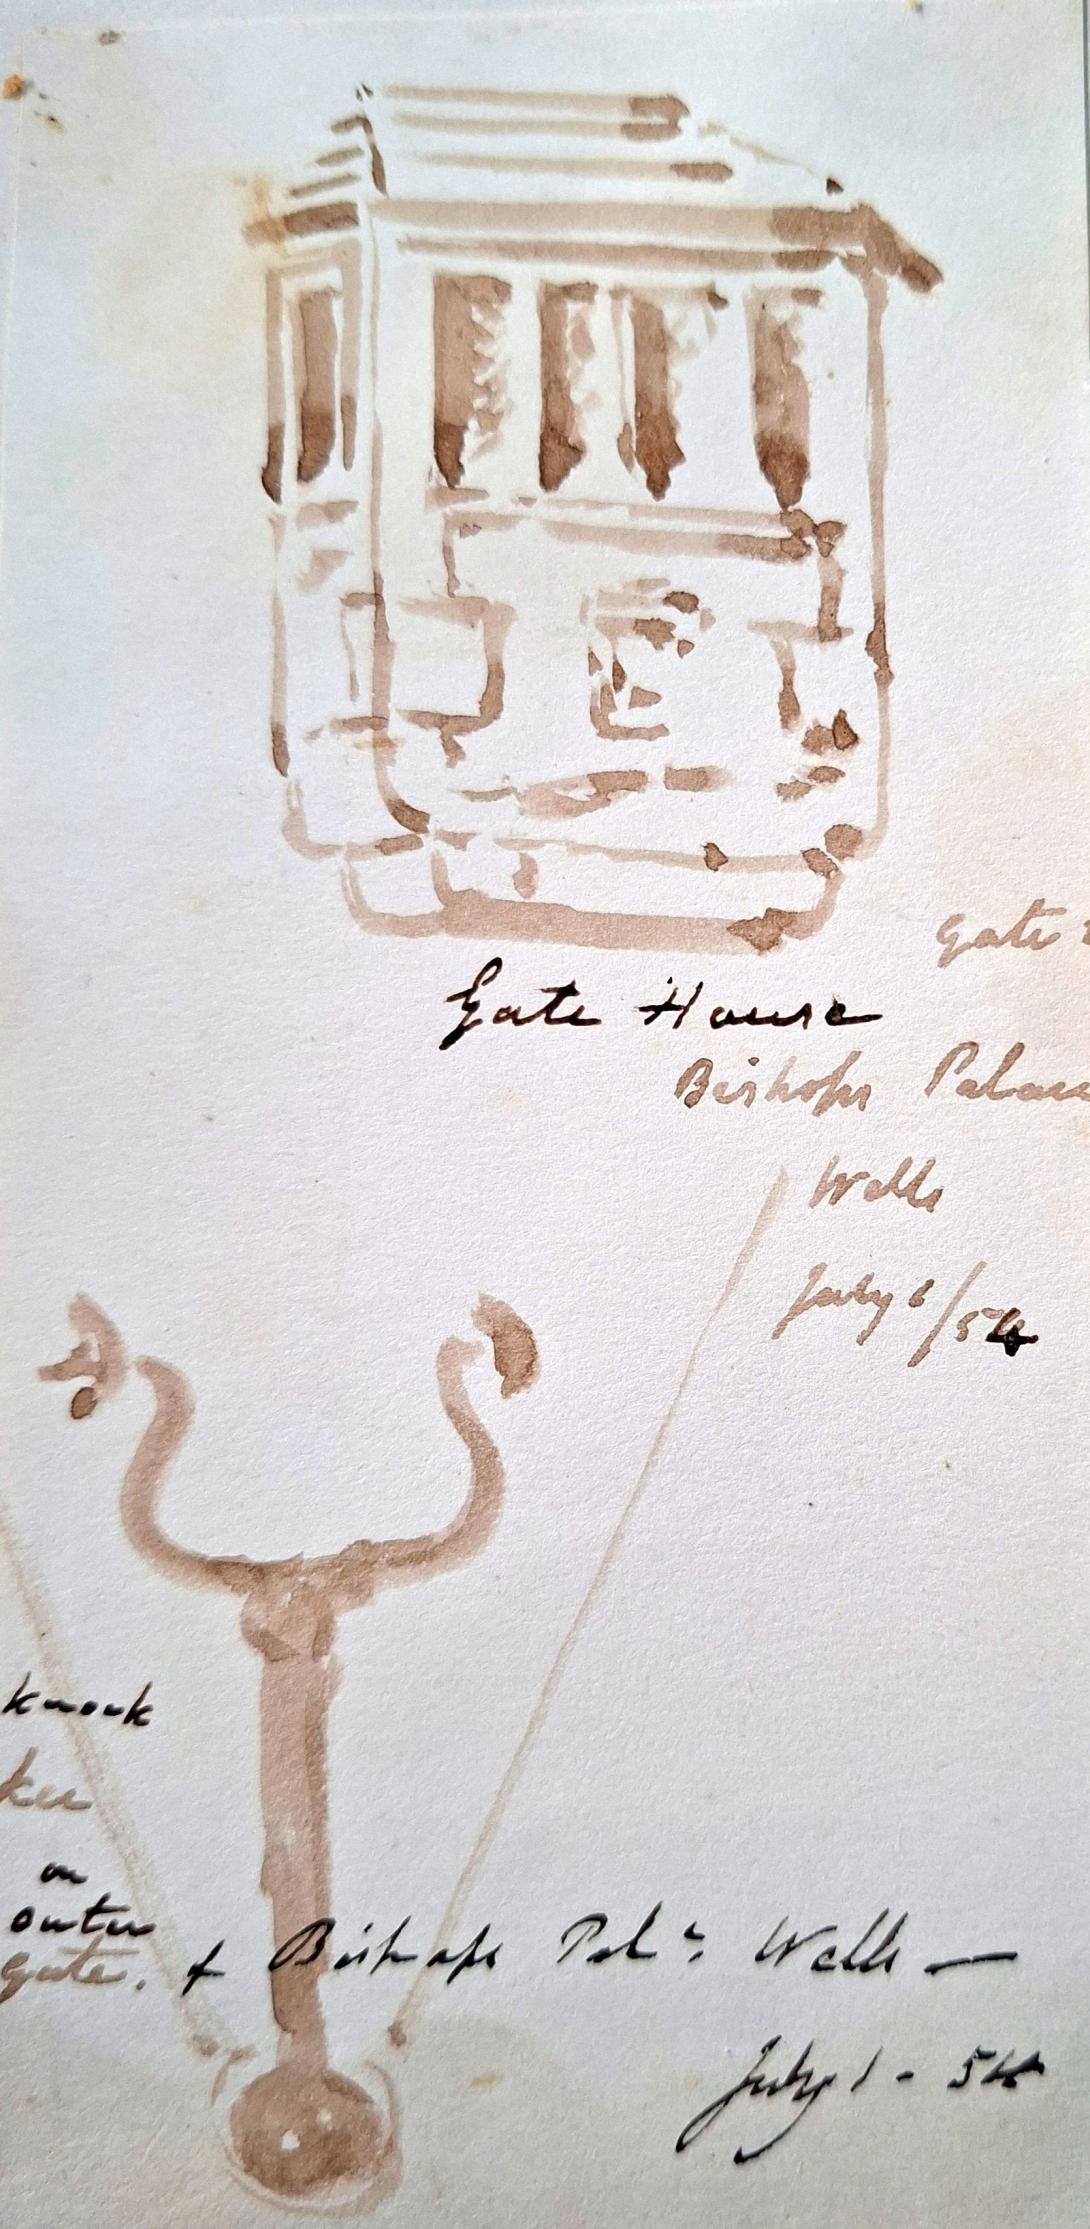 Gate
Gate House
Bishops Palace
Wells
July 1/54
knock
ker
on
outer
gate. of Bishops Pal. Wells —
July 1 - 54